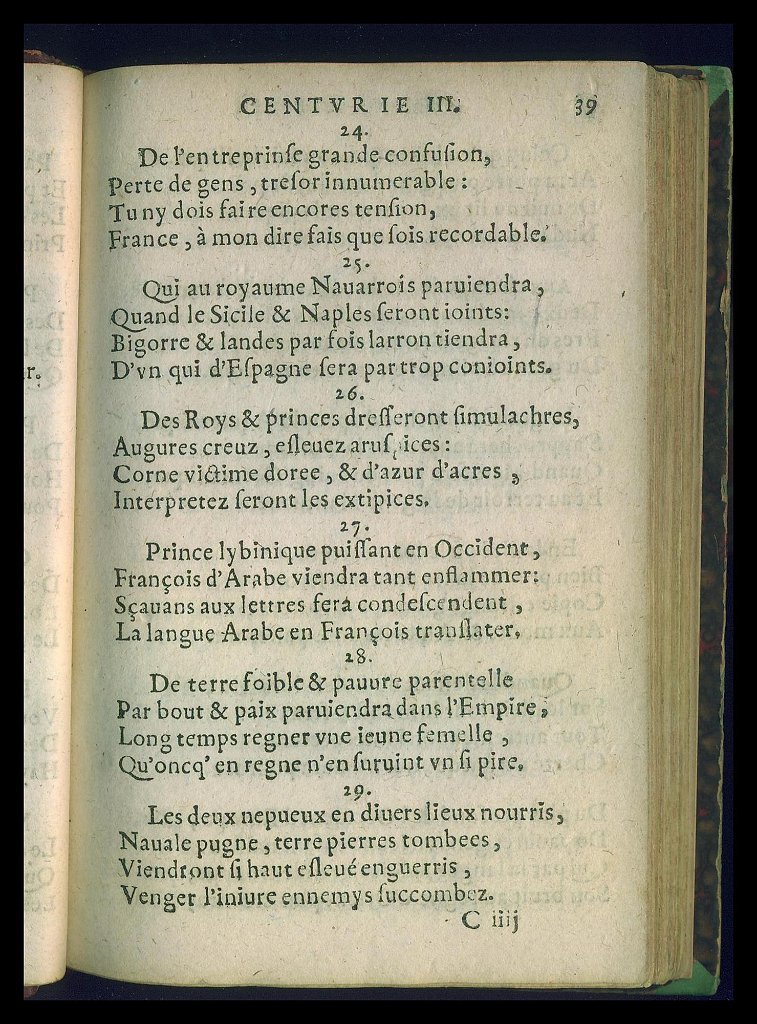 CENTVRIE III. 39
24.
De l'entreprinſe grande confuſion,
Perte de gens, treſor innumerable:
Tu ny dois faire encores tenſion,
France, à mon dire fais que ſois recordable.
25.
Qui au royaume Nauarrois paruiendra,
Quand le Sicile & Naples ſeront ioints:
Bigorre & landes par fois larron tiendra,
D'vn qui d'Eſpagne ſera par trop conioints.
26.
Des Roys & princes dreſſeront ſimulachres,
Augures creuz, eſleuez aruſpices:
Corne victime doree, & d'azur d'acres,
Interpretez ſeront les extipices.
27.
Prince lybinique puiſſant en Occident,
François d'Arabe viendra tant enflammer:
Sçauans aux lettres ſera condeſcendent,
La langue Arabe en François tranſlater.
28.
De terre foible & pauure parentelle
Par bout & paix paruiendra dans l'Empire,
Long temps regner vne ieune femelle,
Qu'oncq' en regne n'en ſuruint vn ſi pire.
29.
Les deux nepueux en diuers lieux nourris,
Nauale pugne, terre pierres tombees,
Viendront ſi haut eſleué enguerris,
Venger l'iniure ennemys ſuccombez.
C iiij